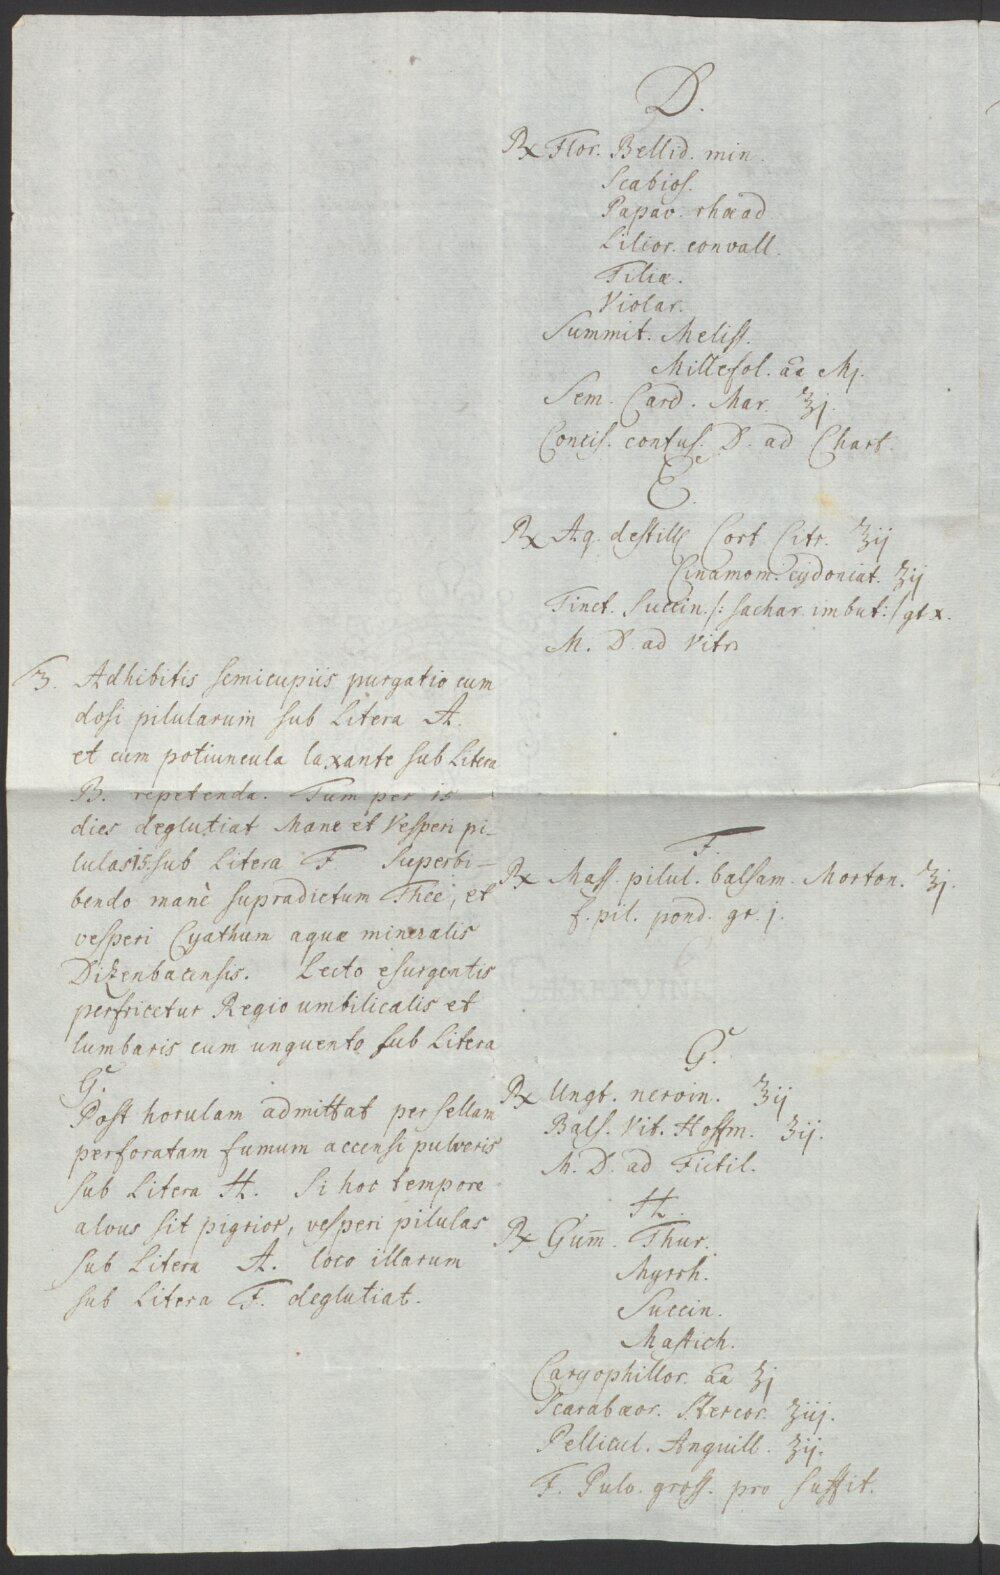 D.
℞ Flor. Bellid. min.
Scabios.
Papav. rhœad
Lilior. convall.
Tiliæ.
Violar.
Summit. Meliss.
Millefol. āā Mj.
Sem. Card. Mar. ʒj.
Concis. contus. D. ad Chart.
E.
℞ Aq. destill. Cort. Citr. ʒij
Cinamom. cydoniat. ʒij
Tinct. Succin. /: sachar. imbut: / gt x.
M. D. ad Vitr.
3. Adhibitis semicupiis purgatio cum
dosi pilularum sub Litera A.
et cum potiuncula laxante sub Litera
B. repetenda. Tum per 15
dies deglutiat Mane et Vesperi pi-
lulas 15. sub Litera F Superbi-
bendo manè supradictum Thee, et
vesperi Cyathum aquæ mineralis
Dizenbacensis. Lecto esurgentis
perfricetur Regio umbilicalis et
lumbaris cum unguento sub Litera
G.
Post horulam admittat per sellam
perforatam fumum accensi pulveris
sub Litera H. Si hoc tempore
alvus sit pigrior, vesperi pilulas
sub Litera A. loco illarum
sub Litera F. deglutiat.
F.
℞ Mass. pilul. balsam. Morton. ʒj.
f. pil. pond. gr. j.
G.
℞ Ungt. nervin. ʒij
Bals. Vit. Hoffm. ʒij.
M. D. ad Fictil.
H.
℞ Gum̄. Thur.
Myrrh.
Succin.
Mastich.
Caryophillor. āā ʒj
Scarabæor. Stercor. ʒiij.
Pellicul. Anguill. ʒij.
F. Pulv. gross. pro suffit.